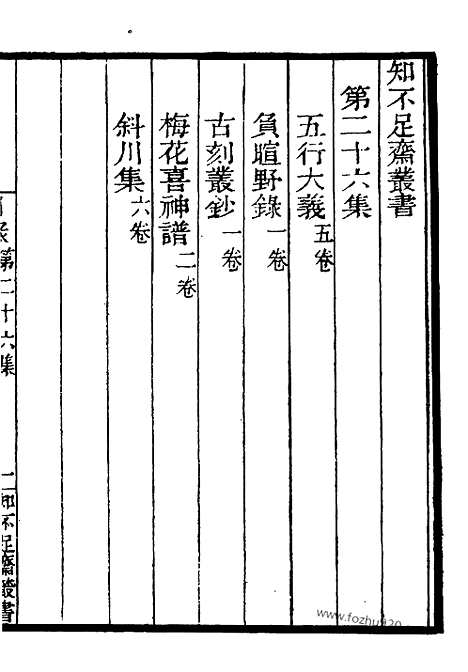 知不足齋叢書
第二十六集
五行大義五卷
負暄野錄一卷
古刻叢鈔一卷
梅花喜神譜二卷
斜川集六卷
目錄第二十六集
二知不足齋叢書
www.fozhu920